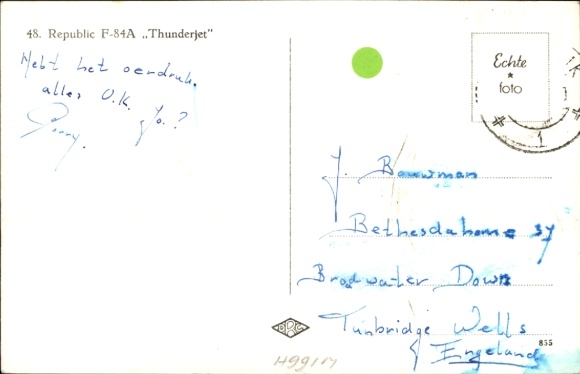 48. Republic F-84A „Thunderjet"
Hebt het oerdruk.
alles O.K. Jo.?
Echte
*
foto
1
J. Bouwman
Bethesdahome 37
Broadwater Down
Tunbridge Wells
Engeland
855
H99114